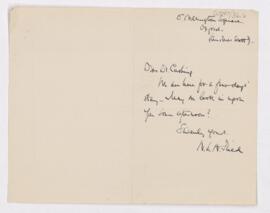 5 Wellington Square
Oxford.
Dear Dr Cushing
We are here for a few days'
stay – May we look in upon
you some afternoon?
Sincerely yours